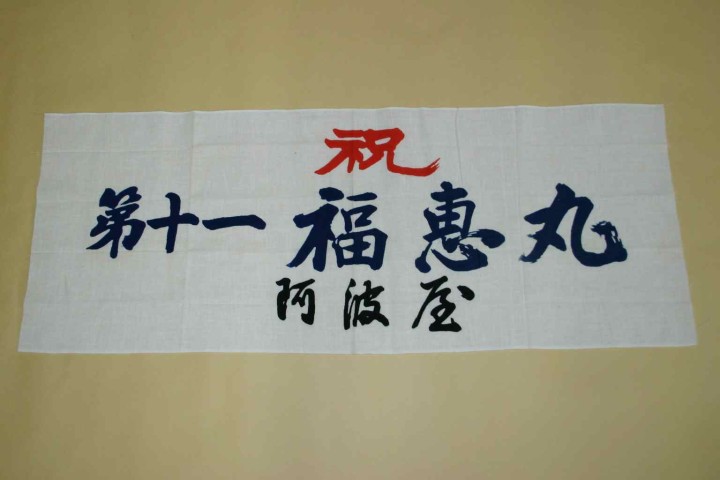 祝
第十一福恵丸
阿波屋